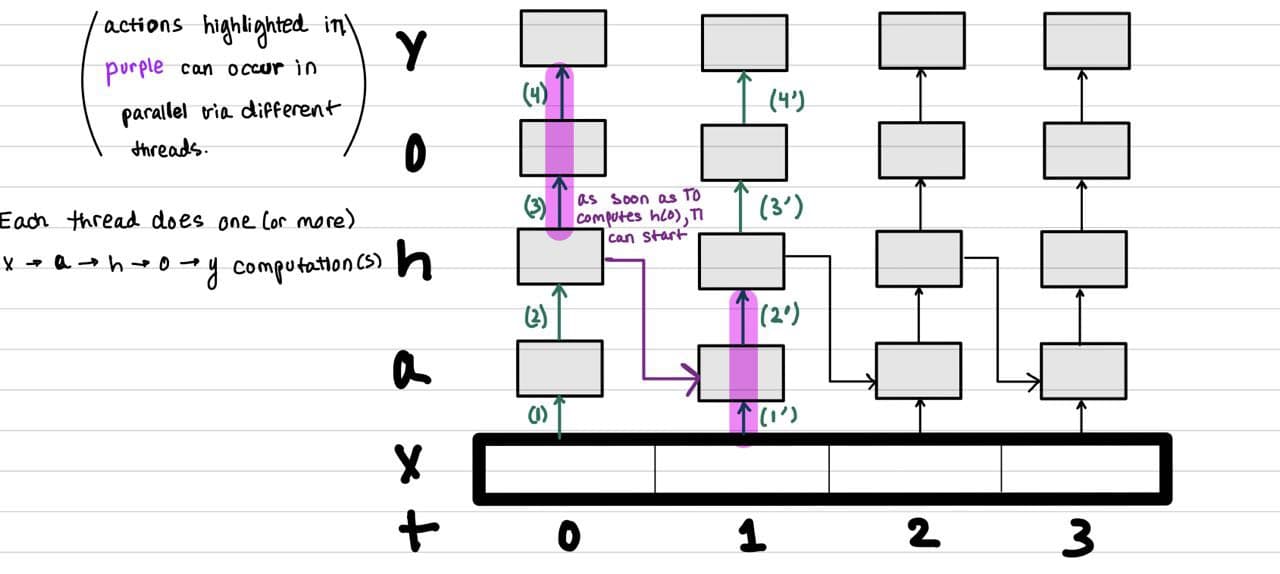 (actions highlighted in
purple can occur in
parallel via different
threads.)
Each thread does one (or more)
x → a → h → o → y computation(s)
y
(4)
(4')
o
(3)
as soon as T0
computes h(0), T1
can start
(3')
h
(2)
(2')
a
(1)
(1')
x
t
0
1
2
3